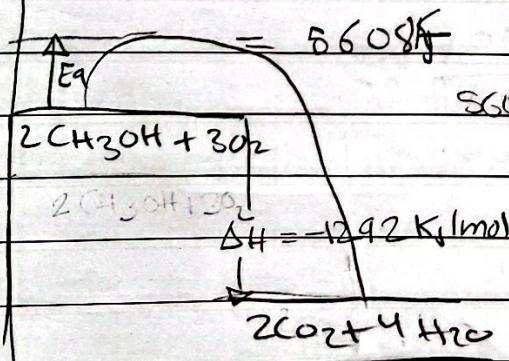 = 5608KJ
Ea
560
2CH3OH + 3O2
2CH3OH+3O2
ΔH = -1292 KJ/mol
2CO2 + 4 H2O